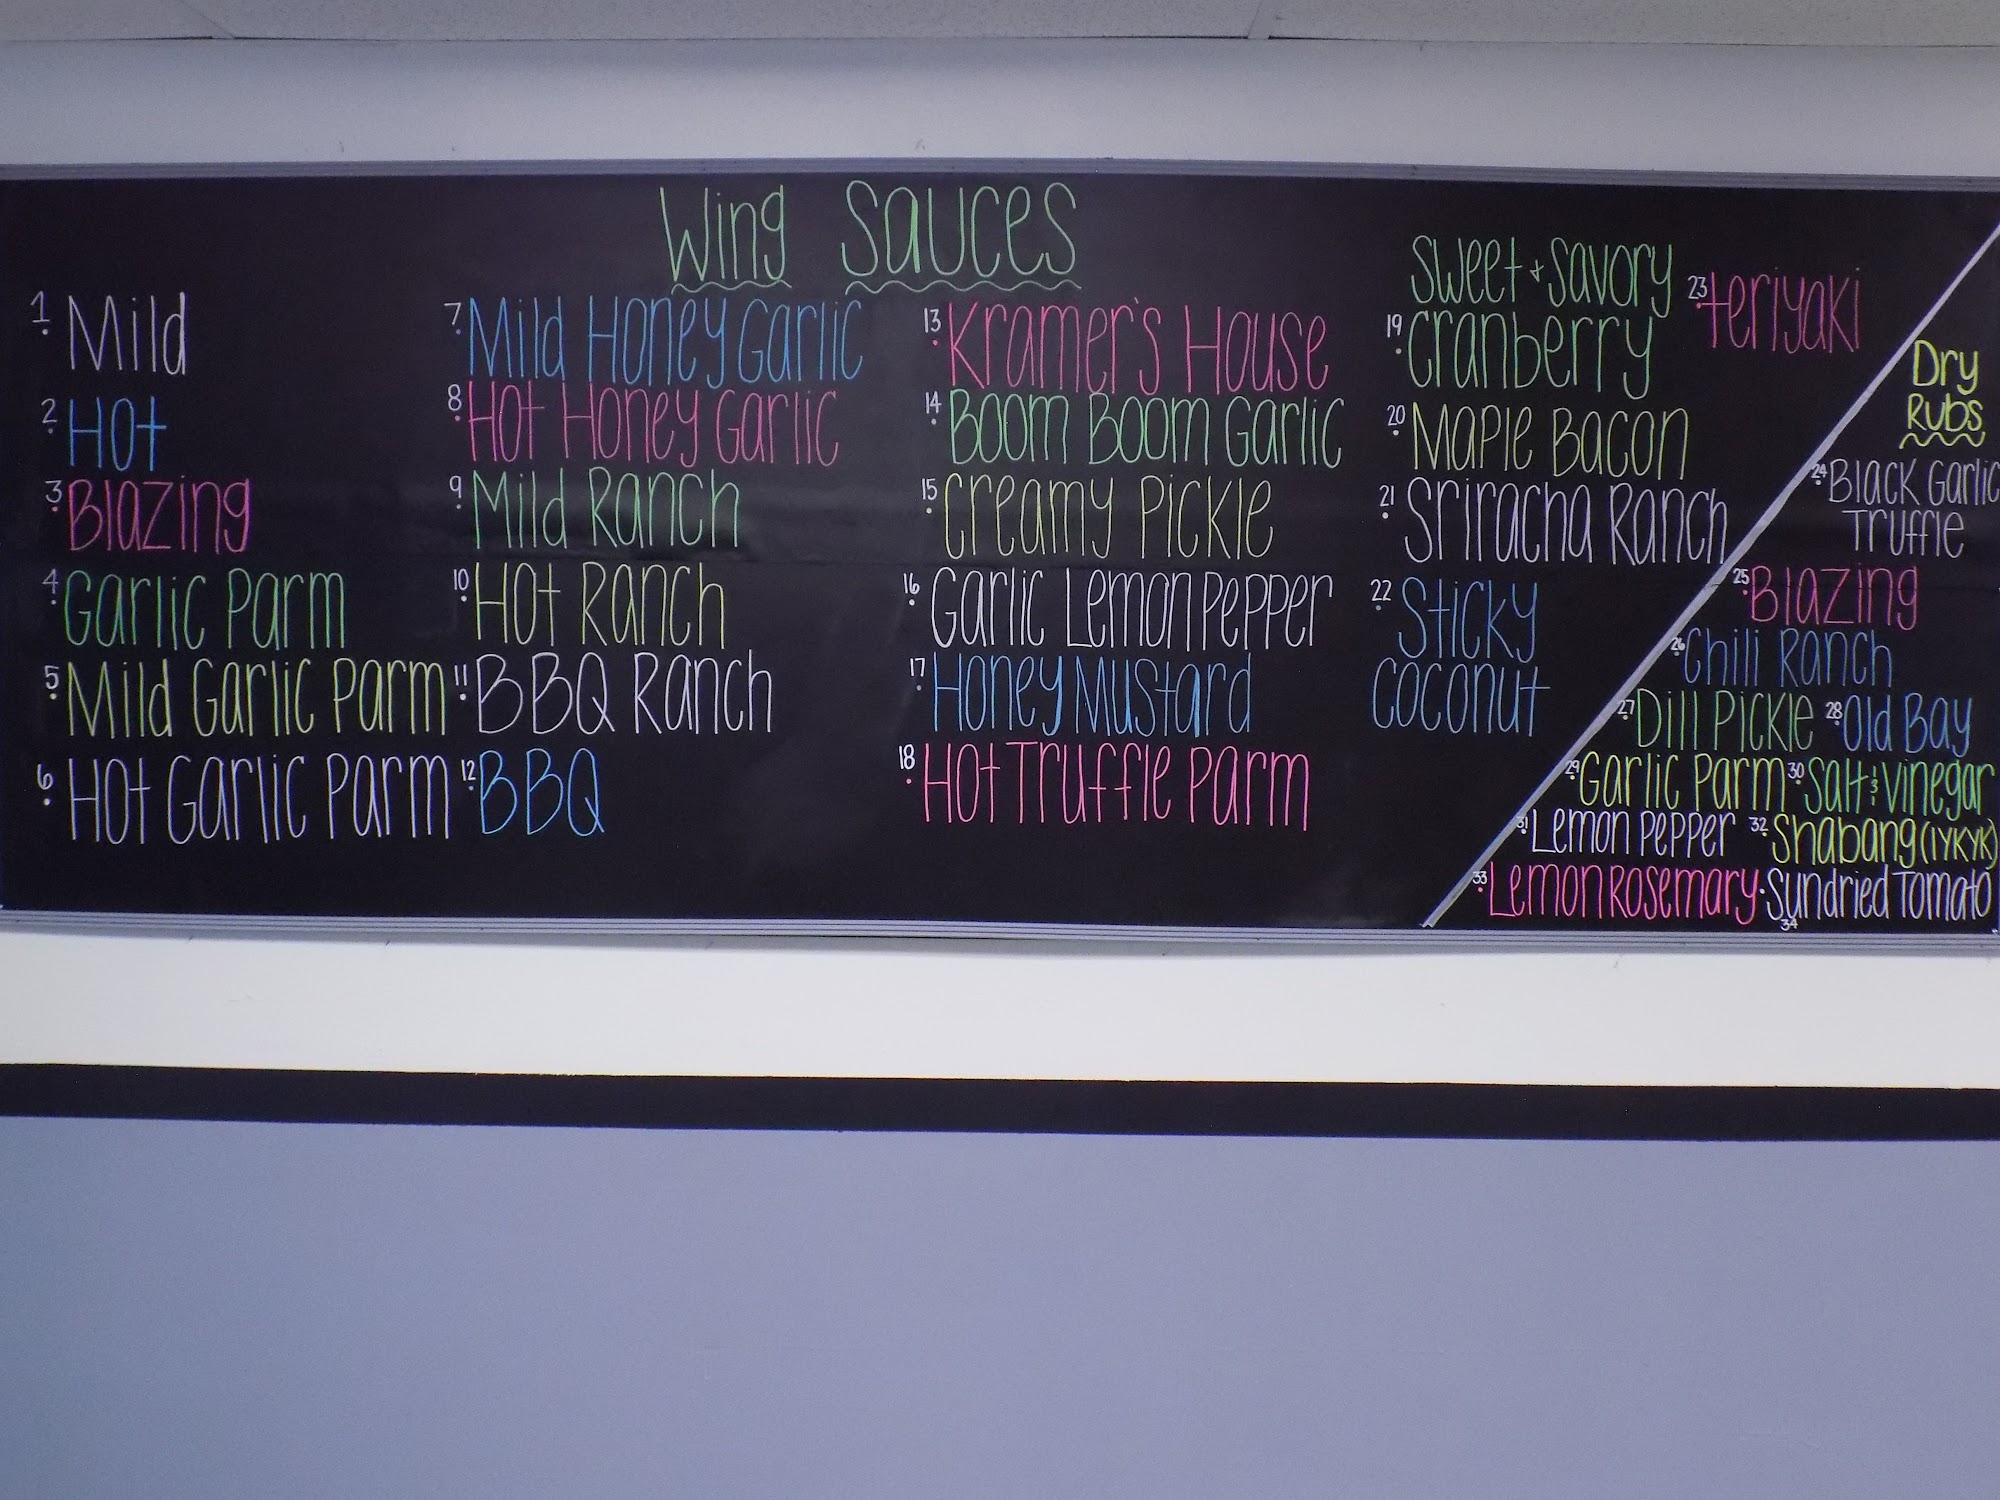 Wing Sauces
1. Mild
2. Hot
3. Blazing
4. Garlic Parm
5. Mild Garlic Parm
6. Hot Garlic Parm
7. Mild Honey Garlic
8. Hot Honey Garlic
9. Mild Ranch
10. Hot Ranch
11. BBQ Ranch
12. BBQ
13. Kramer's House
14. Boom Boom Garlic
15. Creamy Pickle
16. Garlic Lemon Pepper
17. Honey Mustard
18. Hot Truffle Parm
Sweet + Savory
19. Cranberry
20. Maple Bacon
21. Sriracha Ranch
22. Sticky
Coconut
23. teriyaki
Dry
Rubs
24. Black Garlic
Truffle
25. Blazing
26. Chili Ranch
27. Dill Pickle 28. Old Bay
29. Garlic Parm 30. Salt & Vinegar
31. Lemon Pepper 32. Shabang (IYKYK)
33. Lemon Rosemary 34. Sundried Tomato